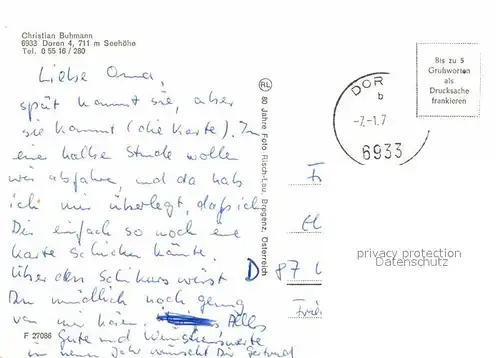 Christian Buhmann
6933 Doren 4, 711 m Seehöhe
Tel. 0 55 16 / 280
Liebe Oma,
spät kommt sie, aber
sie kommt (die Karte). In
eine halbe Stunde wollen
wir abfahren, und da hab
ich mir überlegt, daß ich
Dir einfach so noch eine
Karte schicken könnte.
Über den Schikurs wirst
Du mündlich noch genug
von mir hören. Alles
gute und Wünschenswerte
im neuen Jahr wünscht Dir Gertraud
F 27086
RL
80 Jahre Foto Risch-Lau, Bregenz, Österreich
DOR
b
-7.-1.7
6933
Bis zu 5
Grußworten
als
Drucksache
frankieren
D 87
privacy protection
Datenschutz